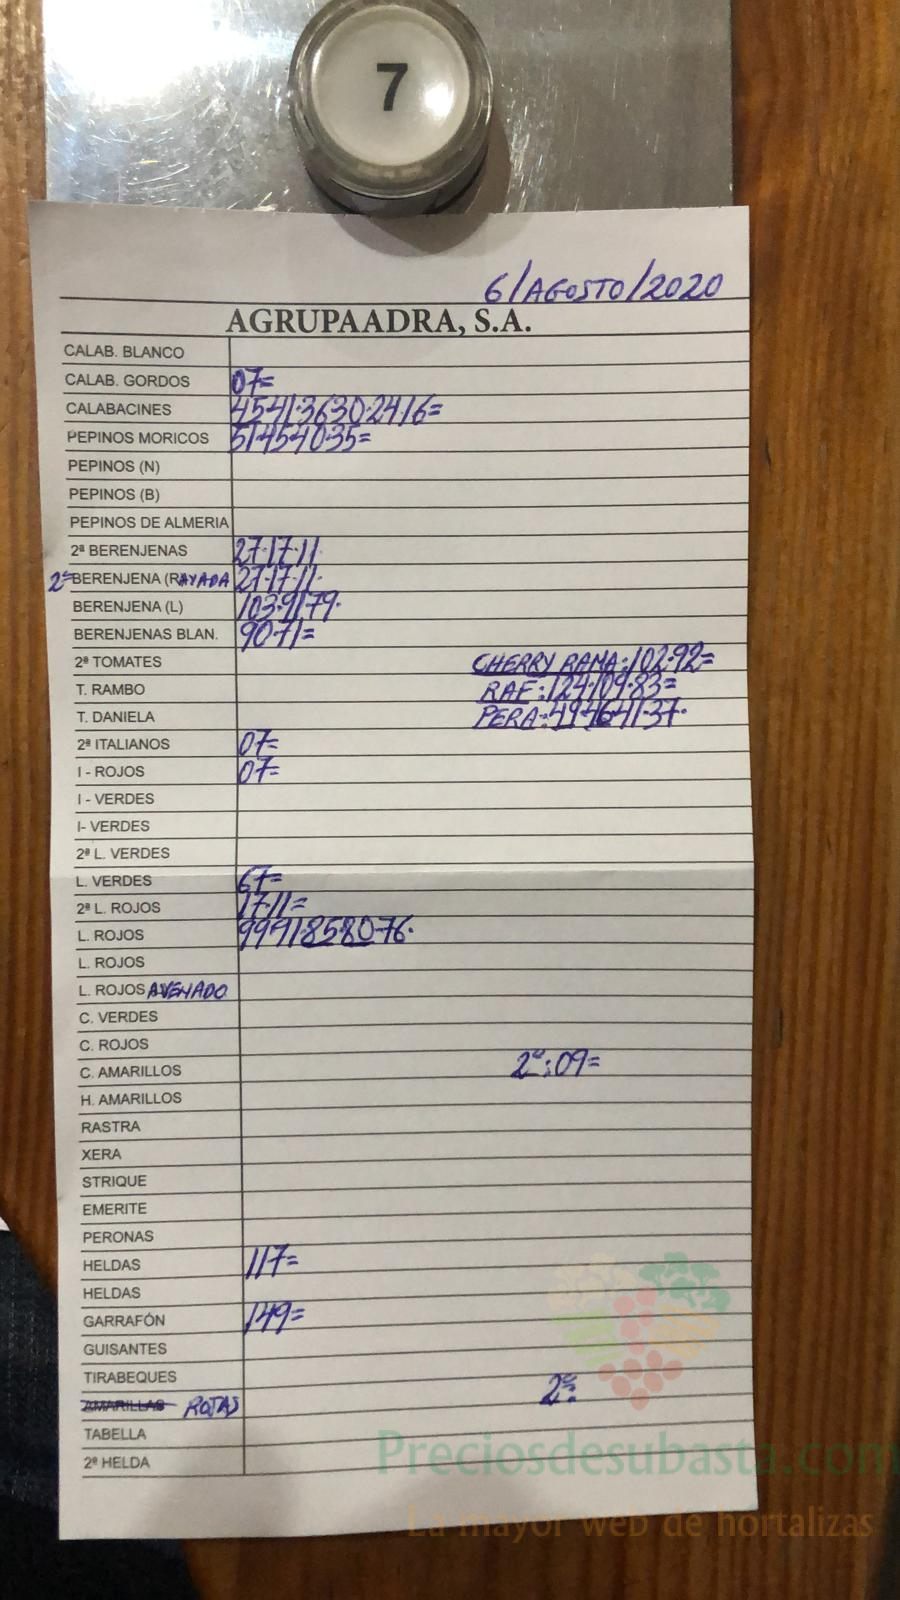 7
6/AGOSTO/2020
AGRUPAADRA, S.A.
CALAB. BLANCO
CALAB. GORDOS 07=
CALABACINES 45·41·36·30·24·16=
PEPINOS MORICOS 51·45·40·35=
PEPINOS (N)
PEPINOS (B)
PEPINOS DE ALMERIA
2ª BERENJENAS 27·17·11·
2ª BERENJENA (RAYADA 27·17·11·
BERENJENA (L) 103·91·79·
BERENJENAS BLAN. 90·71=
2ª TOMATES CHERRY RAMA:102·92=
T. RAMBO RAF:124·109·83=
T. DANIELA PERA:49·46·41·37·
2ª ITALIANOS 07=
I - ROJOS 07=
I - VERDES
I- VERDES
2ª L. VERDES
L. VERDES 67=
2ª L. ROJOS 17·11=
L. ROJOS 99·91·85·80·76·
L. ROJOS
L. ROJOS AVENADO
C. VERDES
C. ROJOS
C. AMARILLOS 2ª:09=
H. AMARILLOS
RASTRA
XERA
STRIQUE
EMERITE
PERONAS
HELDAS 117=
HELDAS
GARRAFÓN 149=
GUISANTES
TIRABEQUES
AMARILLAS ROJAS 2ª:
TABELLA
2ª HELDA
Preciosdesubasta.com
La mayor web de hortalizas